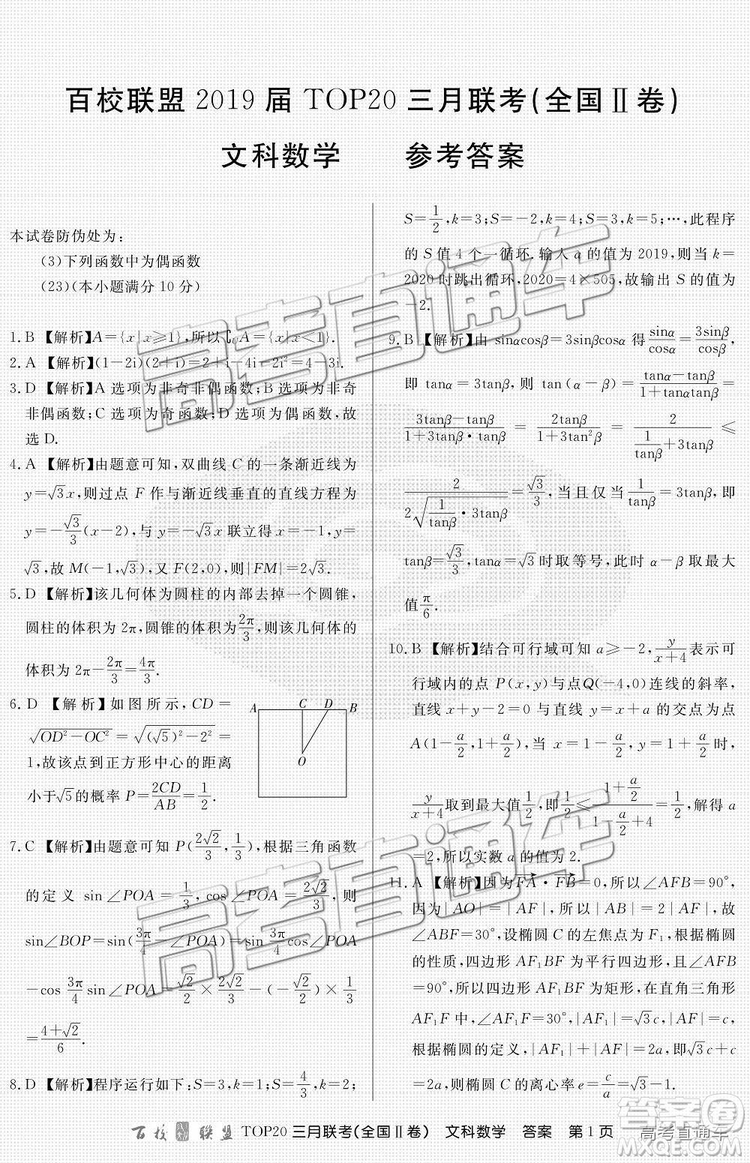 百校联盟 2019 届 TOP20 三月联考(全国Ⅱ卷)
文科数学 参考答案
本试卷防伪处为:
(3)下列函数中为偶函数
(23)(本小题满分 10 分)
1. B 【解析】A={x|x⩾1},所以∁A={x|x<1}.
2. A 【解析】(1−2i)(2+i)=2+i−4i−2i²=4−3i.
3. D 【解析】A 选项为非奇非偶函数;B 选项为非奇
非偶函数;C 选项为奇函数;D 选项为偶函数,故
选 D.
4. A 【解析】由题意可知,双曲线 C 的一条渐近线为
y=√3x,则过点 F 作与渐近线垂直的直线方程为
y=−√3/3(x−2),与 y=−√3x 联立得 x=−1,y=
√3,故 M(−1,√3),又 F(2,0),则|FM|=2√3.
5. D 【解析】该几何体为圆柱的内部去掉一个圆锥,
圆柱的体积为 2π,圆锥的体积为 2π/3,则该几何体的
体积为 2π−2π/3=4π/3.
6. D 【解析】如图所示,CD=
√(OD²−OC²)=√((√5)²−2²)=
1,故该点到正方形中心的距离
小于√5的概率 P=2CD/AB=1/2.
A C D B
O
7. C 【解析】由题意可知 P(2√2/3,1/3),根据三角函数
的定义 sin∠POA=1/3,cos∠POA=2√2/3,则
sin∠BOP=sin(3π/4−∠POA)=sin3π/4cos∠POA
−cos3π/4sin∠POA=√2/2×2√2/3−(−√2/2)×1/3
=(4+√2)/6.
8. D 【解析】程序运行如下:S=3,k=1;S=4,k=2;
S=1/2,k=3;S=−2,k=4;S=3,k=5;⋯,此程序
的 S 值 4 个一循环.输入 a 的值为 2019,则当 k=
2020 时跳出循环,2020=4×505,故输出 S 的值为
−2.
9. B 【解析】由 sinαcosβ=3sinβcosα 得 sinα/cosα=3sinβ/cosβ,
即 tanα=3tanβ,则 tan(α−β)=(tanα−tanβ)/(1+tanαtanβ)=
(3tanβ−tanβ)/(1+3tanβtanβ)=2tanβ/(1+3tan²β)=2/(1/tanβ+3tanβ)⩽
2/(2√(1/tanβ·3tanβ))=√3/3,当且仅当1/tanβ=3tanβ,即
tanβ=√3/3,tanα=√3时取等号,此时 α−β 取最大
值π/6.
10. B 【解析】结合可行域可知 a⩾−2,y/(x+4)表示可
行域内的点 P(x,y)与点Q(−4,0)连线的斜率,
直线 x+y−2=0 与直线 x−y+a=0 的交点为点
A(1−a/2,1+a/2),当 x=1−a/2,y=1+a/2时,
y/(x+4)取到最大值1/2,即(1+a/2)/(1−a/2+4)=1/2,解得 a
=2,所以实数 a 的值为 2.
11. A 【解析】因为FA·FB=0,所以∠AFB=90°,
因为|AO|=|AF|,所以|AB|=2|AF|,故
∠ABF=30°,设椭圆 C 的左焦点为 F₁,根据椭圆
的对称性,四边形 AF₁BF 为矩形,在直角三角形
AFF₁中,∠AF₁F=30°,|AF₁|=√3c,|AF|=c,
根据椭圆的定义|AF₁|+|AF|=2a,即√3c+c=
2a,则椭圆 C 的离心率 e=c/a=2/(√3+1)=√3−1.
百校联盟 TOP20 三月联考(全国Ⅱ卷) 文科数学 答案 第 1 页
高考直通车
高考直通车
高考直通车
答案圈
MXQE.COM
高考直通车